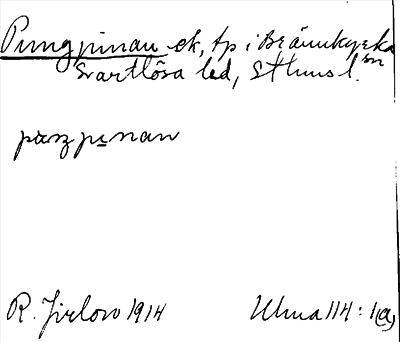 Pungpinan ek, tp i Brännkyrka sn
Svartlösa hd, Sthms l.
pʉŋpinan
R. Jirlow 1914 Ulma 114:1(a)